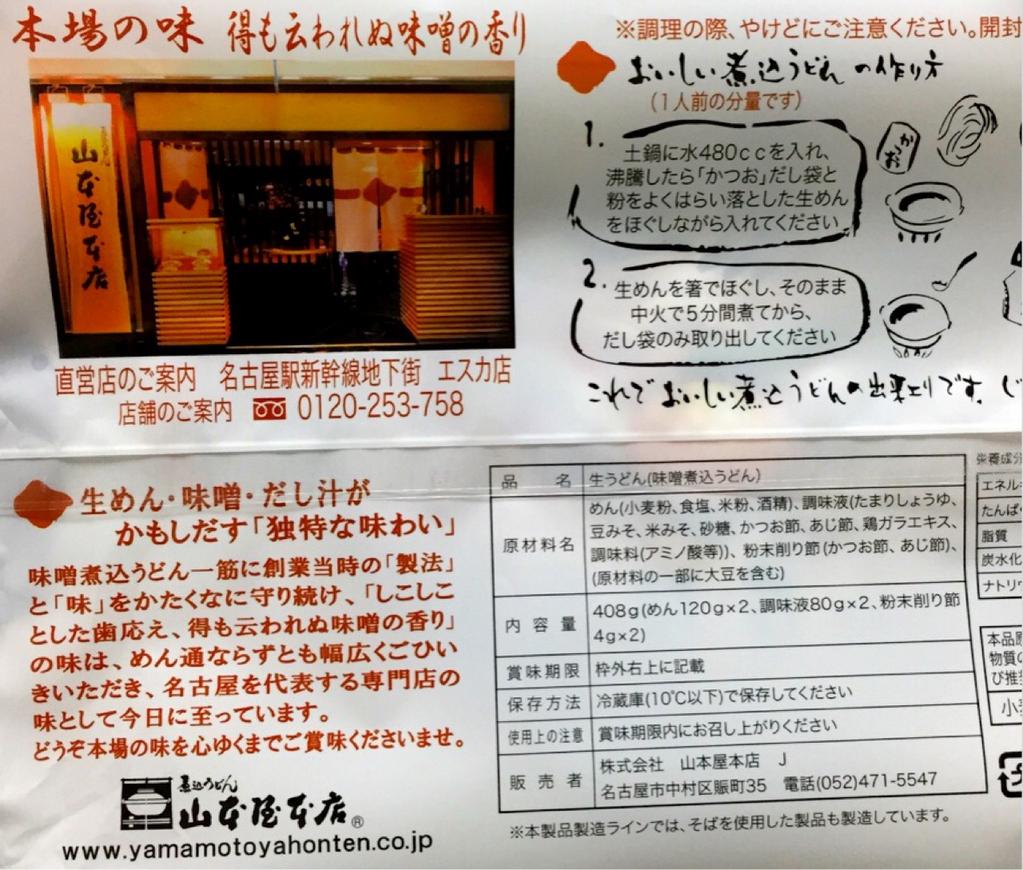 本場の味 得も云われぬ味噌の香り
山本屋本店
直営店のご案内 名古屋駅新幹線地下街 エスカ店
店舗のご案内 0120-253-758
※調理の際、やけどにご注意ください。開封
おいしい煮込うどんの作り方
(1人前の分量です)
1.
土鍋に水480ccを入れ、
沸騰したら「かつお」だし袋と
粉をよくはらい落とした生めん
をほぐしながら入れてください
かつお
2.
生めんを箸でほぐし、そのまま
中火で5分間煮てから、
だし袋のみ取り出してください
これでおいしい煮込うどんの出来上りです。
生めん・味噌・だし汁が
かもしだす「独特な味わい」
味噌煮込うどん一筋に創業当時の「製法」
と「味」をかたくなに守り続け、「しこしこ
とした歯応え、得も云われぬ味噌の香り」
の味は、めん通ならずとも幅広くごひい
きいただき、名古屋を代表する専門店の
味として今日に至っています。
どうぞ本場の味を心ゆくまでご賞味くださいませ。
煮込うどん
山本屋本店®
www.yamamotoyahonten.co.jp
品名 生うどん(味噌煮込うどん)
原材料名 めん(小麦粉、食塩、米粉、酒精)、調味液(たまりしょうゆ、
豆みそ、米みそ、砂糖、かつお節、あじ節、鶏ガラエキス、
調味料(アミノ酸等))、粉末削り節(かつお節、あじ節)、
(原材料の一部に大豆を含む)
内容量 408g(めん120g×2、調味液80g×2、粉末削り節
4g×2)
賞味期限 枠外右上に記載
保存方法 冷蔵庫(10℃以下)で保存してください
使用上の注意 賞味期限内にお召し上がりください
販売者 株式会社 山本屋本店 J
名古屋市中村区賑町35 電話(052)471-5547
※本製品製造ラインでは、そばを使用した製品も製造しています。
栄養成分
エネル
たんぱ
脂質
炭水化
ナトリウ
本品原
物質の
び推奨
小麦